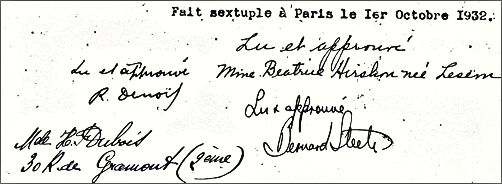 Fait sextuple à Paris le Ier Octobre 1932.
Lu et approuvé
Lu et approuvé
Mme Beatrice Hirshon née Lesem
R. Denois
Lu & approuvé
Bernard
Mde H. F. Dubois
30 R de Gramont (2ème)